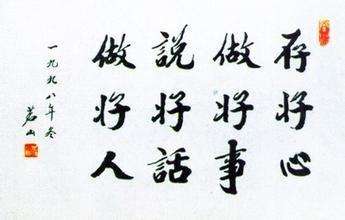 存好心
做好事
說好話
做好人
一九九八年冬
茗山